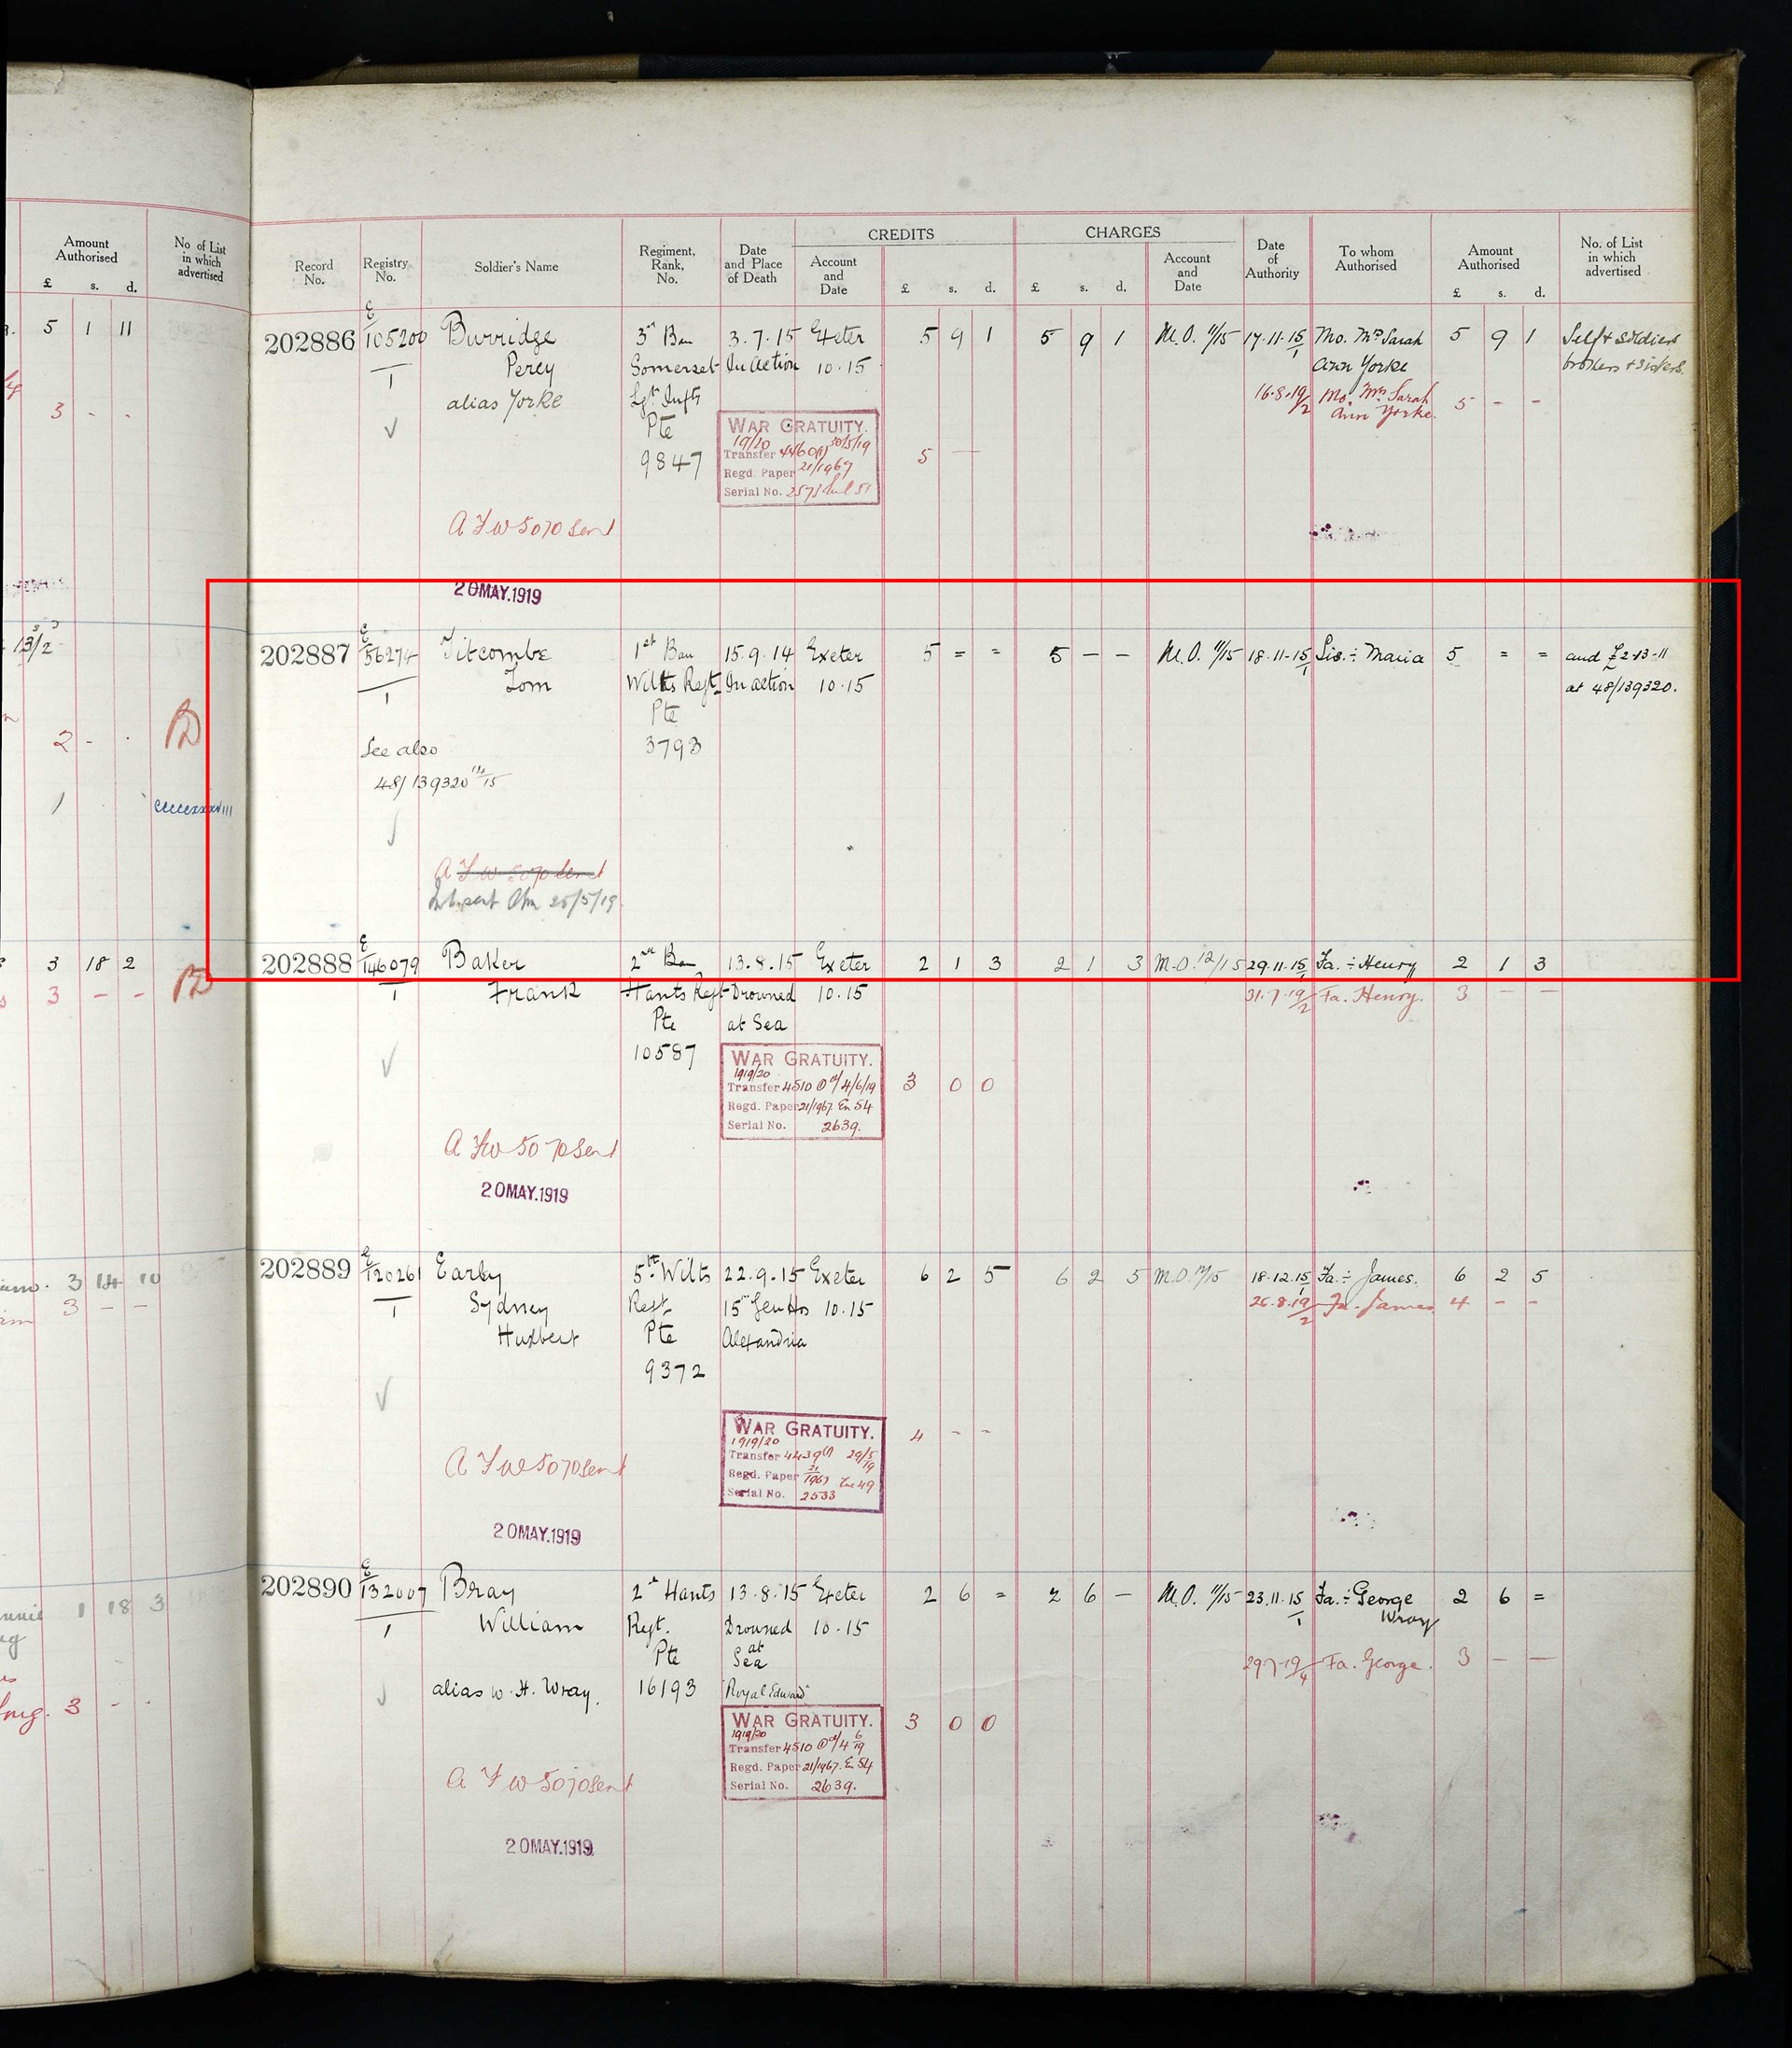 Amount
Authorised
£ s. d.
No of List
in which
advertised
5 1 11
3 - -
13/2
2 - -
1
3 18 2
3 - -
3 14 10
3 - -
1 18 3
3 - -
CREDITS CHARGES
Record
No.
Registry
No.
Soldier's Name
Regiment,
Rank,
No.
Date
and Place
of Death
Account
and
Date
£ s. d.
£ s. d.
Account
and
Date
Date
of
Authority
To whom
Authorised
Amount
Authorised
£ s. d.
No. of List
in which
advertised
202886 E/105200 Burridge 3rd Bn 3.7.15 Exeter 5 9 1 5 9 1 M.O. 11/15 17.11.15 Mo. Mrs Sarah 5 9 1 Self & soldiers
1 Percy Somerset In action 10.15 Ann Yorke brothers & sisters.
alias Yorke Lgt Infty 16.8.19/2 Mo. Mrs Sarah 5 - -
Pte Ann Yorke.
9847
WAR GRATUITY.
19/20
Transfer 30/5/19 5 -
Regd. Paper 21/1967
Serial No.
A F W 5070 sent
20 MAY.1919
202887 E/56274 Titcombe 1st Bn 15.9.14 Exeter 5 = = 5 - - M.O. 11/15 18.11.15 Sis. ÷ Maria 5 = = and £2-13-11
1 Tom Wilts Regt In action 10.15 at 48/139320.
Pte
See also 3793
48/139320
A F W 5070 sent
20/5/19
202888 E/146079 Baker 2nd Bn 13.8.15 Exeter 2 1 3 2 1 3 M.O. 12/15 29.11.15 Fa. ÷ Henry 2 1 3
1 Frank Hants Regt Drowned 10.15 31.7.19/2 Fa. Henry. 3 - -
Pte at Sea
10587
WAR GRATUITY.
1919/20
Transfer 4510 4/6/19 3 0 0
Regd. Paper 21/1967. En 54
Serial No. 2639.
A F W 5070 sent
20 MAY.1919
202889 E/120261 Earley 5th Wilts 22.9.15 Exeter 6 2 5 6 2 5 M.O. 18.12.15 Fa. ÷ James. 6 2 5
1 Sydney Regt 15 Gen Hos 10.15 26.8.19/2 Fa. James 4 - -
Hubert Pte Alexandria
9372
WAR GRATUITY.
1919/20
Transfer 4439 29/5/19 4 - -
Regd. Paper 21/1967 49
Serial No. 2533
A F W 5070 sent
20 MAY.1919
202890 E/132007 Bray 2d Hants 13.8.15 Exeter 2 6 = 2 6 - M.O. 11/15 23.11.15 Fa. ÷ George 2 6 =
1 William Regt. Drowned 10.15 Wray
Pte at Sea 29.7.19/4 Fa. George. 3 - -
alias W. H. Wray. 16193 "Royal Edward"
WAR GRATUITY.
1919/20
Transfer 4510 4/6/19 3 0 0
Regd. Paper 21/1967. En 54
Serial No. 2639.
A F W 5070 sent
20 MAY.1919